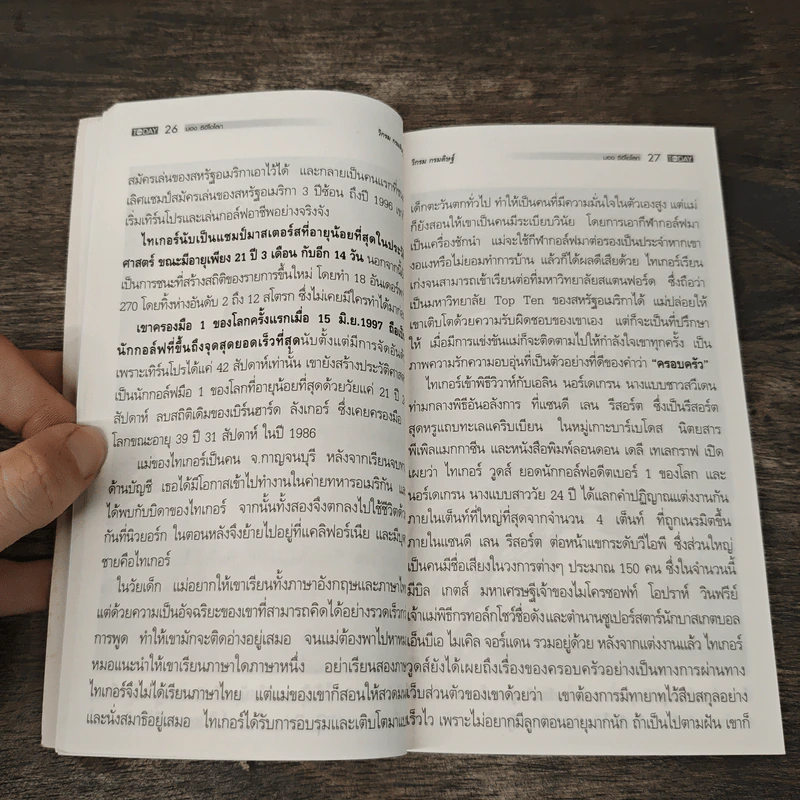 TODAY 26 มอง ซีอีโอโลก
วิกรม
สมัครเล่นของสหรัฐอเมริกาเอาไว้ได้ และกลายเป็นคนแรกที่
เลิศแชมป์สมัครเล่นของสหรัฐอเมริกา 3 ปีซ้อน ถึงปี 1996
เริ่มเทิร์นโปรและเล่นกอล์ฟอาชีพอย่างจริงจัง
ไทเกอร์นับเป็นแชมป์มาสเตอร์สที่อายุน้อยที่สุดใน
ศาสตร์ ขณะมีอายุเพียง 21 ปี 3 เดือน กับอีก 14 วัน
เป็นการชนะที่สร้างสถิติของรายการขึ้นใหม่ โดยทำ 18 อันเดอร์
270 โดยทิ้งห่างอันดับ 2 ถึง 12 สโตรก ซึ่งไม่เคยมีใครทำได้
เขาครองมือ 1 ของโลกครั้งแรกเมื่อ 15 มิ.ย.1997
นักกอล์ฟที่ขึ้นถึงจุดสุดยอดเร็วที่สุดนับตั้งแต่มีการจัด
เพราะเทิร์นโปรได้แค่ 42 สัปดาห์เท่านั้น เขายังสร้าง
เป็นนักกอล์ฟมือ 1 ของโลกที่อายุน้อยที่สุดด้วยวัยแค่ 21 ปี
สัปดาห์ ลบสถิติเดิมของเบิร์นฮาร์ด ลังเกอร์ ซึ่งเคยครองมือ
โลกขณะอายุ 39 ปี 31 สัปดาห์ ในปี 1986
แม่ของไทเกอร์เป็นคน จ.กาญจนบุรี หลังจากเรียน
ด้านบัญชี เธอได้มีโอกาสเข้าไปทำงานในค่ายทหารอเมริกัน
ได้พบกับบิดาของไทเกอร์ จากนั้นทั้งสองจึงตกลงไปใช้ชีวิต
กันที่นิวยอร์ก ในตอนหลังจึงย้ายไปอยู่ที่แคลิฟอร์เนีย
ชายคือไทเกอร์
ในวัยเด็ก แม่อยากให้เขาเรียนทั้งภาษาอังกฤษและภาษา
แต่ด้วยความเป็นอัจฉริยะของเขาที่สามารถคิดได้อย่างรวดเร็ว
การพูด ทำให้เขามักจะติดอ่างอยู่เสมอ จนแม่ต้องพาไปหา
หมอแนะนำให้เขาเรียนภาษาใดภาษาหนึ่ง อย่าเรียนสอง
ไทเกอร์จึงไม่ได้เรียนภาษาไทย แต่แม่ของเขาก็สอนให้สวด
และนั่งสมาธิอยู่เสมอ ไทเกอร์ได้รับการอบรมและเติบโต
วิกรม กรมดิษฐ์
มอง ซีอีโอโลก 27 TODAY
เด็กตะวันตกทั่วไป ทำให้เป็นคนที่มีความมั่นใจในตัวเองสูง แต่แม่
ก็ยังสอนให้เขาเป็นคนมีระเบียบวินัย โดยการเอากีฬากอล์ฟมา
เป็นเครื่องชักนำ แม่จะใช้กีฬากอล์ฟมาต่อรองเป็นประจำหากเขา
งอแงหรือไม่ยอมทำการบ้าน แล้วก็ได้ผลดีเสียด้วย ไทเกอร์เรียน
เก่งจนสามารถเข้าเรียนต่อที่มหาวิทยาลัยสแตนฟอร์ด ซึ่งถือว่า
เป็นมหาวิทยาลัย Top Ten ของสหรัฐอเมริกาได้ แม่ปล่อยให้
เขาเติบโตด้วยความรับผิดชอบของเขาเอง แต่ก็จะเป็นที่ปรึกษา
ให้ เมื่อมีการแข่งขันแม่ก็จะติดตามไปให้กำลังใจเขาทุกครั้ง เป็น
ภาพความรักความอบอุ่นที่เป็นตัวอย่างที่ดีของคำว่า “ครอบครัว”
ไทเกอร์เข้าพิธีวิวาห์กับเอลิน นอร์เดเกรน นางแบบชาวสวีเดน
ท่ามกลางพิธีอันอลังการ ที่แซนดี เลน รีสอร์ต ซึ่งเป็นรีสอร์ต
สุดหรูแถบทะเลแคริบเบียน ในหมู่เกาะบาร์เบโดส นิตยสาร
พีเพิลแมกกาซีน และหนังสือพิมพ์ลอนดอน เดลี เทเลกราฟ เปิด
เผยว่า ไทเกอร์ วูดส์ ยอดนักกอล์ฟอดีตเบอร์ 1 ของโลก และ
นอร์เดเกรน นางแบบสาววัย 24 ปี ได้แลกคำปฏิญาณแต่งงานกัน
ภายในเต็นท์ที่ใหญ่ที่สุดจากจำนวน 4 เต็นท์ ที่ถูกเนรมิตขึ้น
ภายในแซนดี เลน รีสอร์ต ต่อหน้าแขกระดับวีไอพี ซึ่งส่วนใหญ่
เป็นคนมีชื่อเสียงในวงการต่างๆ ประมาณ 150 คน ซึ่งในจำนวนนี้
มีบิล เกตส์ มหาเศรษฐีเจ้าของไมโครซอฟท์ โอปราห์ วินฟรีย์
เจ้าแม่พิธีกรทอล์กโชว์ชื่อดังและตำนานซูเปอร์สตาร์นักบาสเกตบอล
เอ็นบีเอ ไมเคิล จอร์แดน รวมอยู่ด้วย หลังจากแต่งงานแล้ว ไทเกอร์
วูดส์ยังได้เผยถึงเรื่องของครอบครัวอย่างเป็นทางการผ่านทาง
เว็บส่วนตัวของเขาด้วยว่า เขาต้องการมีทายาทไว้สืบสกุลอย่าง
เร็วไว เพราะไม่อยากมีลูกตอนอายุมากนัก ถ้าเป็นไปตามฝัน เขาก็